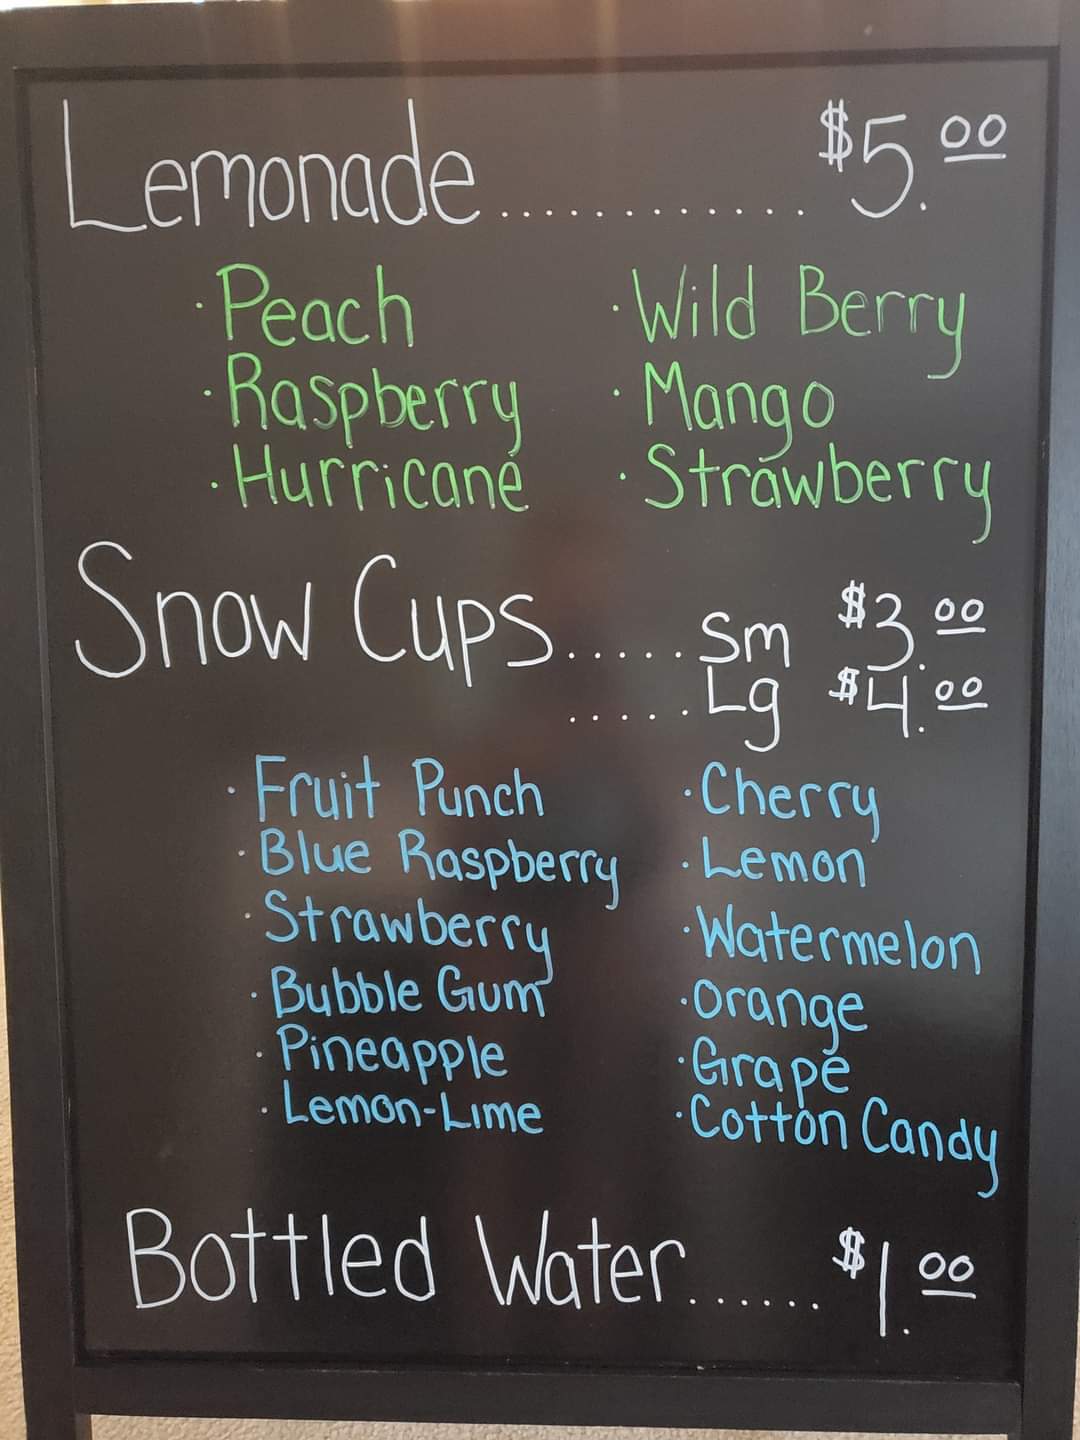 Lemonade............ $5.00
· Peach · Wild Berry
· Raspberry · Mango
· Hurricane · Strawberry
Snow Cups..... Sm $3.00
..... Lg $4.00
· Fruit Punch · Cherry
· Blue Raspberry · Lemon
· Strawberry · Watermelon
· Bubble Gum · Orange
· Pineapple · Grape
· Lemon-Lime · Cotton Candy
Bottled Water...... $1.00